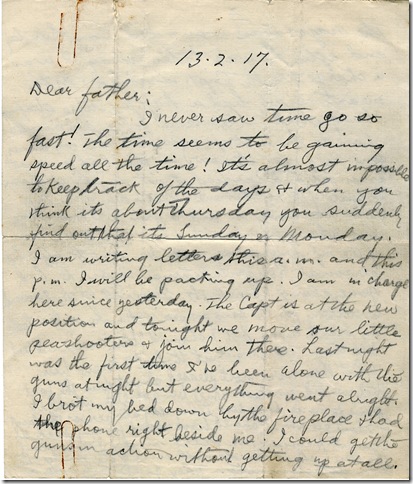 13.2.17.
Dear father;
I never saw time go so
fast! The time seems to be gaining
speed all the time! It's almost impossible
to keep track of the days & when you
think its about Thursday you suddenly
find out that its Sunday or Monday.
I am writing letters this a.m. and this
p.m. I will be packing up. I am in charge
here since yesterday. The Capt is at the new
position and tonight we move our little
peashooters & join him there. Last night
was the first time I've been alone with the
guns at night but everything went alright.
I brot my bed down by the fireplace & had
the phone right beside me. I could get the
guns in action without getting up at all.